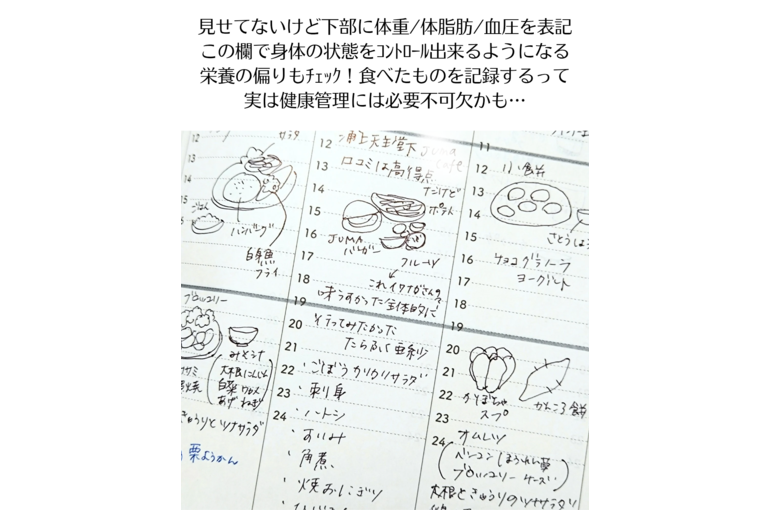 見せてないけど下部に体重/体脂肪/血圧を表記
この欄で身体の状態をｺﾝﾄﾛｰﾙ出来るようになる
栄養の偏りもﾁｪｯｸ！食べたものを記録するって
実は健康管理には必要不可欠かも…
12
サラダ
13
14
ごはん
15
ハンバーグ
白身魚
フライ
12
浦上天主堂下 JUMA
13
口コミは高得点
14
だけど
ポテト
15
16
JUMA
バーガー
17
フルーツ
18
19
味うすかった 全体的に
20
行ってみたかった
21
たらふく 亜紗
22
・ごぼうカリカリサラダ
23
・刺身
24
・ハトシ
・角煮
・焼おにぎり
11
12
13
14
15
16
チョコグラノーラ
17
ヨーグルト
18
20
21
22
かぼちゃ
スープ
かんころ餅
23
24
オムレツ
ベーコン ほうれん草
ブロッコリー チーズ
大根ときゅうりのツナサラダ
ブロッコリー
みそ汁
大根 にんじん
白菜
あげ ねぎ
きゅうりとツナサラダ
栗ようかん